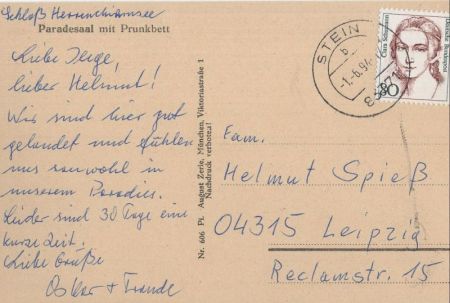 Schloß Herrenchiemsee
Paradesaal mit Prunkbett
Liebe Inge,
lieber Helmut!
Wir sind hier gut
gelandet und fühlen
uns sauwohl in
unserem Paradies.
Leider sind 30 Tage eine
kurze Zeit.
Liebe Grüße
Oskar + Traude
Nr. 606 Pl. August Zerle, München, Viktoriastraße 1
Nachdruck verboten!
STEIN
b
-1.-6.94
Clara Schumann
Deutsche Bundespost
80
Fam.
Helmut Spieß
04315 Leipzig
Reclamstr. 15